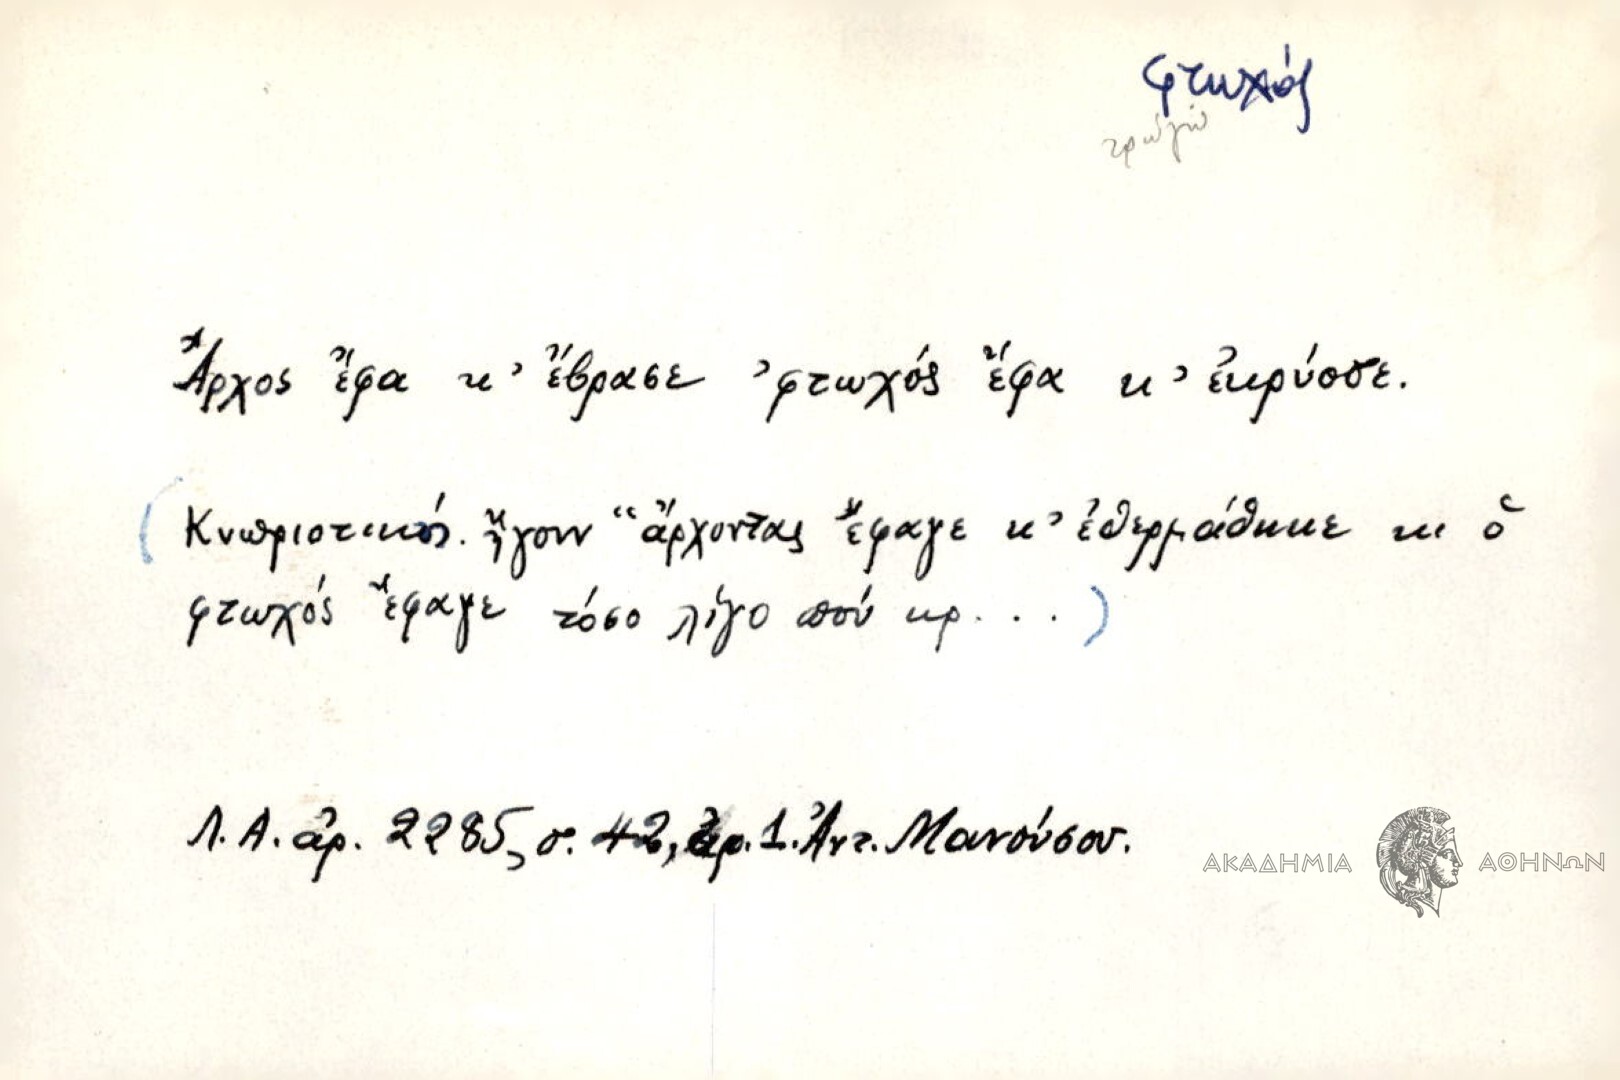 φτωχός
τρώγω
Ἄρχος ἔφα κ' ἔβρασε 'φτωχός ἔφα κ' ἐκρύοσε.
(Κνωριστικό. ἤγουν "ἄρχοντας ἔφαγε κ' ἐθερμάθηκε κι ὁ
φτωχός ἔφαγε τόσο λίγο πού κρ. . . . )
Λ. Α. ἀρ. 2285, σ. 42, ἀρ. 1. Ἀντ. Μανούσου.
ΑΚΑΔΗΜΙΑ ΑΘΗΝΩΝ